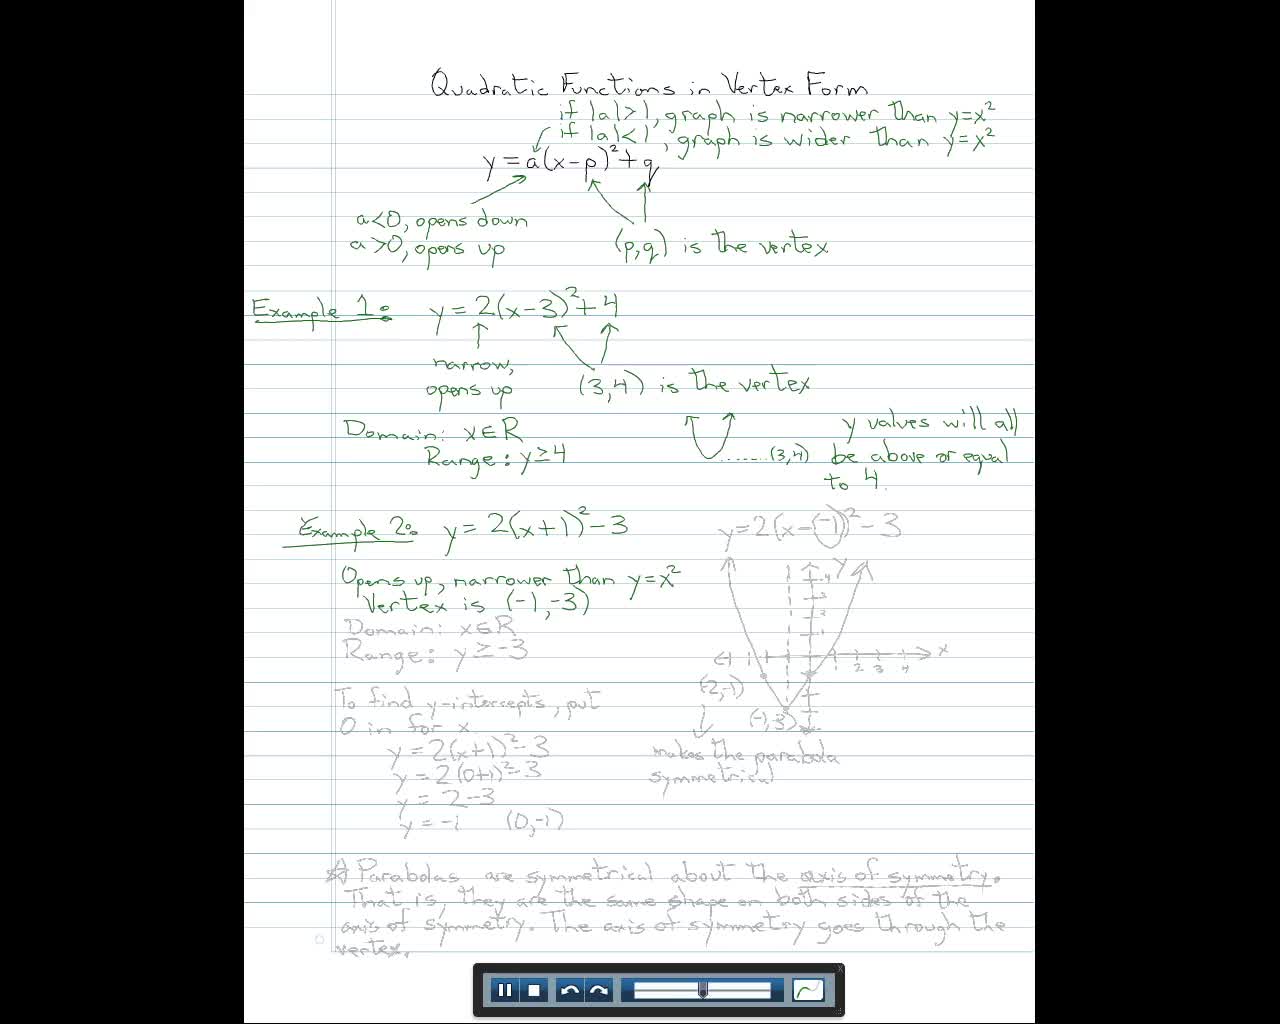 Quadratic Functions in Vertex Form
if |a|>1, graph is narrower than y=x²
if |a|<1, graph is wider than y=x²
y=a(x-p)²+q
a<0, opens down
a>0, opens up
(p,q) is the vertex
Example 1: y=2(x-3)²+4
narrow,
opens up
(3,4) is the vertex
Domain: x∈R
Range: y≥4
(3,4)
y values will all
be above or equal
to 4.
Example 2: y=2(x+1)²-3
y=2(x-(-1))²-3
Opens up, narrower than y=x²
Vertex is (-1,-3)
Domain: x∈R
Range: y≥-3
To find y-intercepts, put
0 in for x.
y=2(x+1)²-3
y=2(0+1)²-3
y=2-3
y=-1 (0,-1)
y
4
3
2
1
x
1 2 3 4
(-2,-1)
(-1,-3)
makes the parabola
symmetrical
☆ Parabolas are symmetrical about the axis of symmetry.
That is, they are the same shape on both sides of the
axis of symmetry. The axis of symmetry goes through the
vertex.